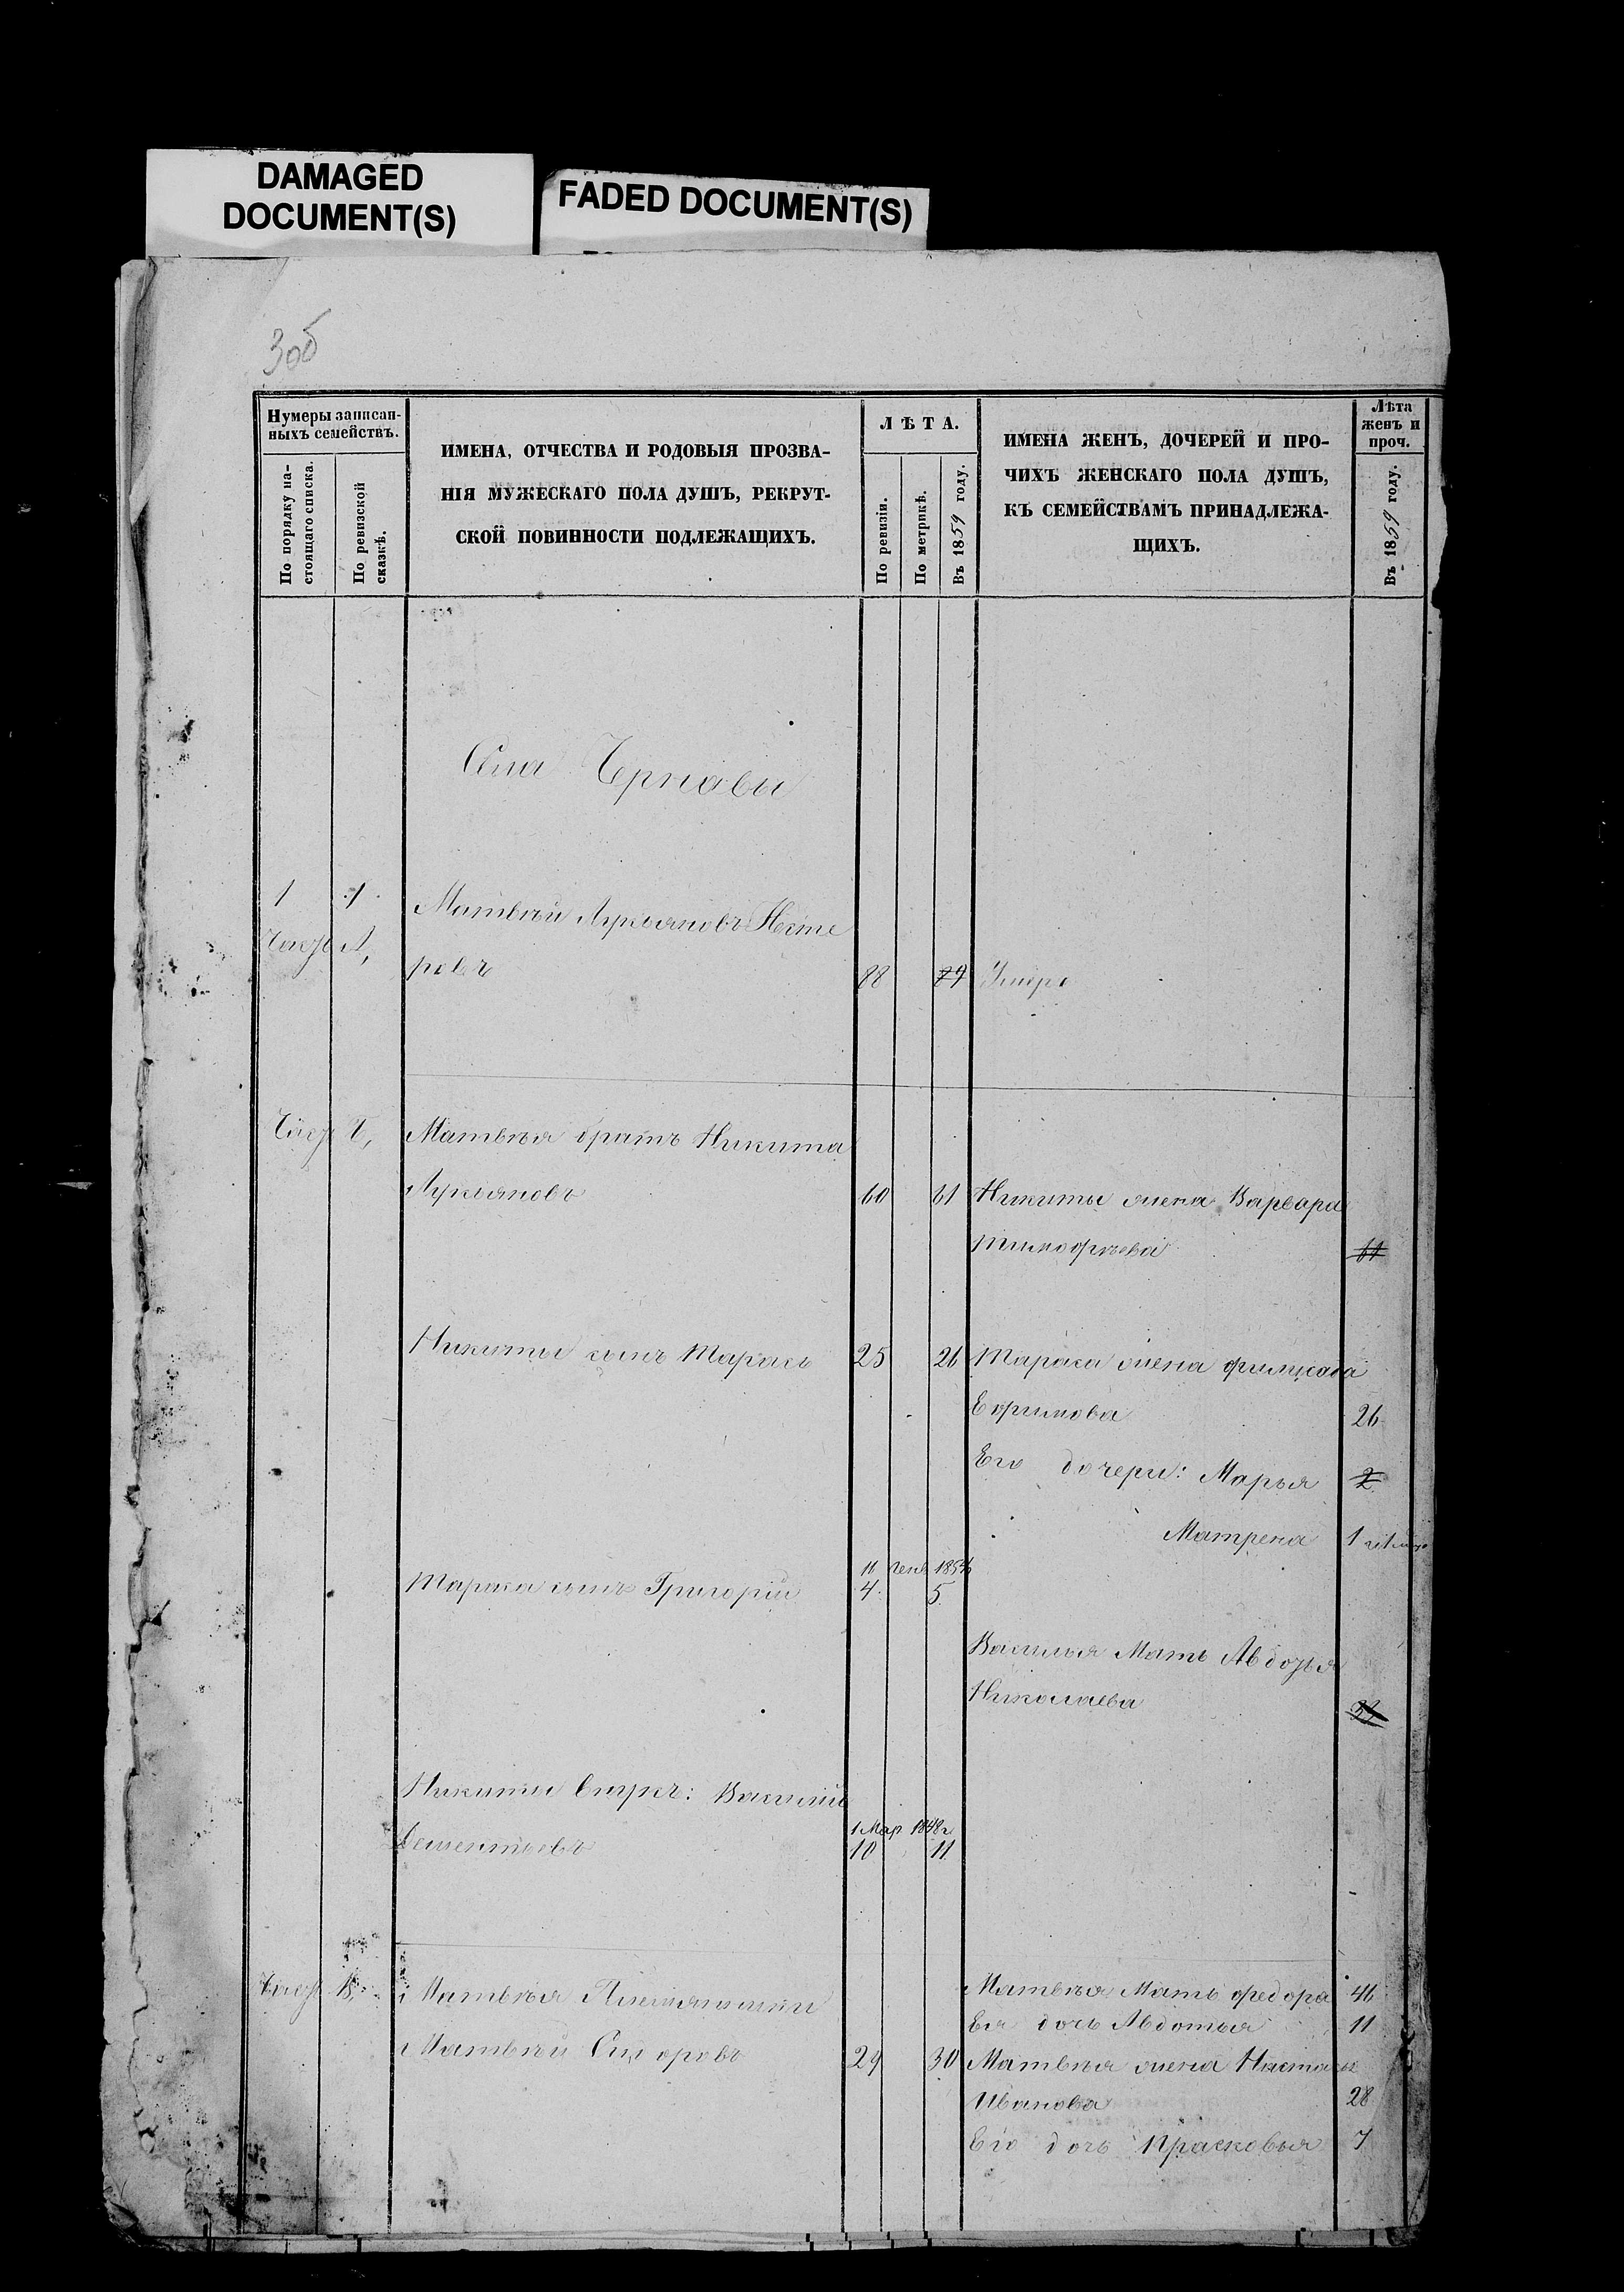 DAMAGED
DOCUMENT(S)
FADED DOCUMENT(S)
30б
Нумеры записан-
ныхъ семействъ.
По порядку на-
стоящаго списка.
По ревизской
сказкѣ.
ИМЕНА, ОТЧЕСТВА И РОДОВЫЯ ПРОЗВА-
НІЯ МУЖЕСКАГО ПОЛА ДУШЪ, РЕКРУТ-
СКОЙ ПОВИННОСТИ ПОДЛЕЖАЩИХЪ.
ЛѢТА.
По ревизіи.
По метрикѣ.
Въ 1859 году.
ИМЕНА ЖЕНЪ, ДОЧЕРЕЙ И ПРО-
ЧИХЪ ЖЕНСКАГО ПОЛА ДУШЪ,
КЪ СЕМЕЙСТВАМЪ ПРИНАДЛЕЖА-
ЩИХЪ.
Лѣта
женъ и
проч.
Въ 1859 году.
Села Чернавы
1 1 Матвѣй Лукьяновъ Несте
Часть А,
ровъ 88 89 Умеръ
Часть Б, Матвѣя братъ Никита
Лукьяновъ 60 61 Никиты жена Варвара
Тимофѣева 61
Никиты сынъ Тарасъ 25 26 Тараса жена
Ефимова 26
Его дочери: Марья 2
Матрена 1
Тараса сынъ Григорій 4 5
Василья Мать Авдотья
Николаева
Никиты внукъ: Василій
1 Мар 1848 г
10 11
Часть В, Матвѣя Племянники Матвѣя Мать Федора 46
Ея дочь Авдотья 11
Матвѣй Сидоровъ 29 30 Матвѣя жена Настасья
Иванова 28
Его дочь Прасковья 7